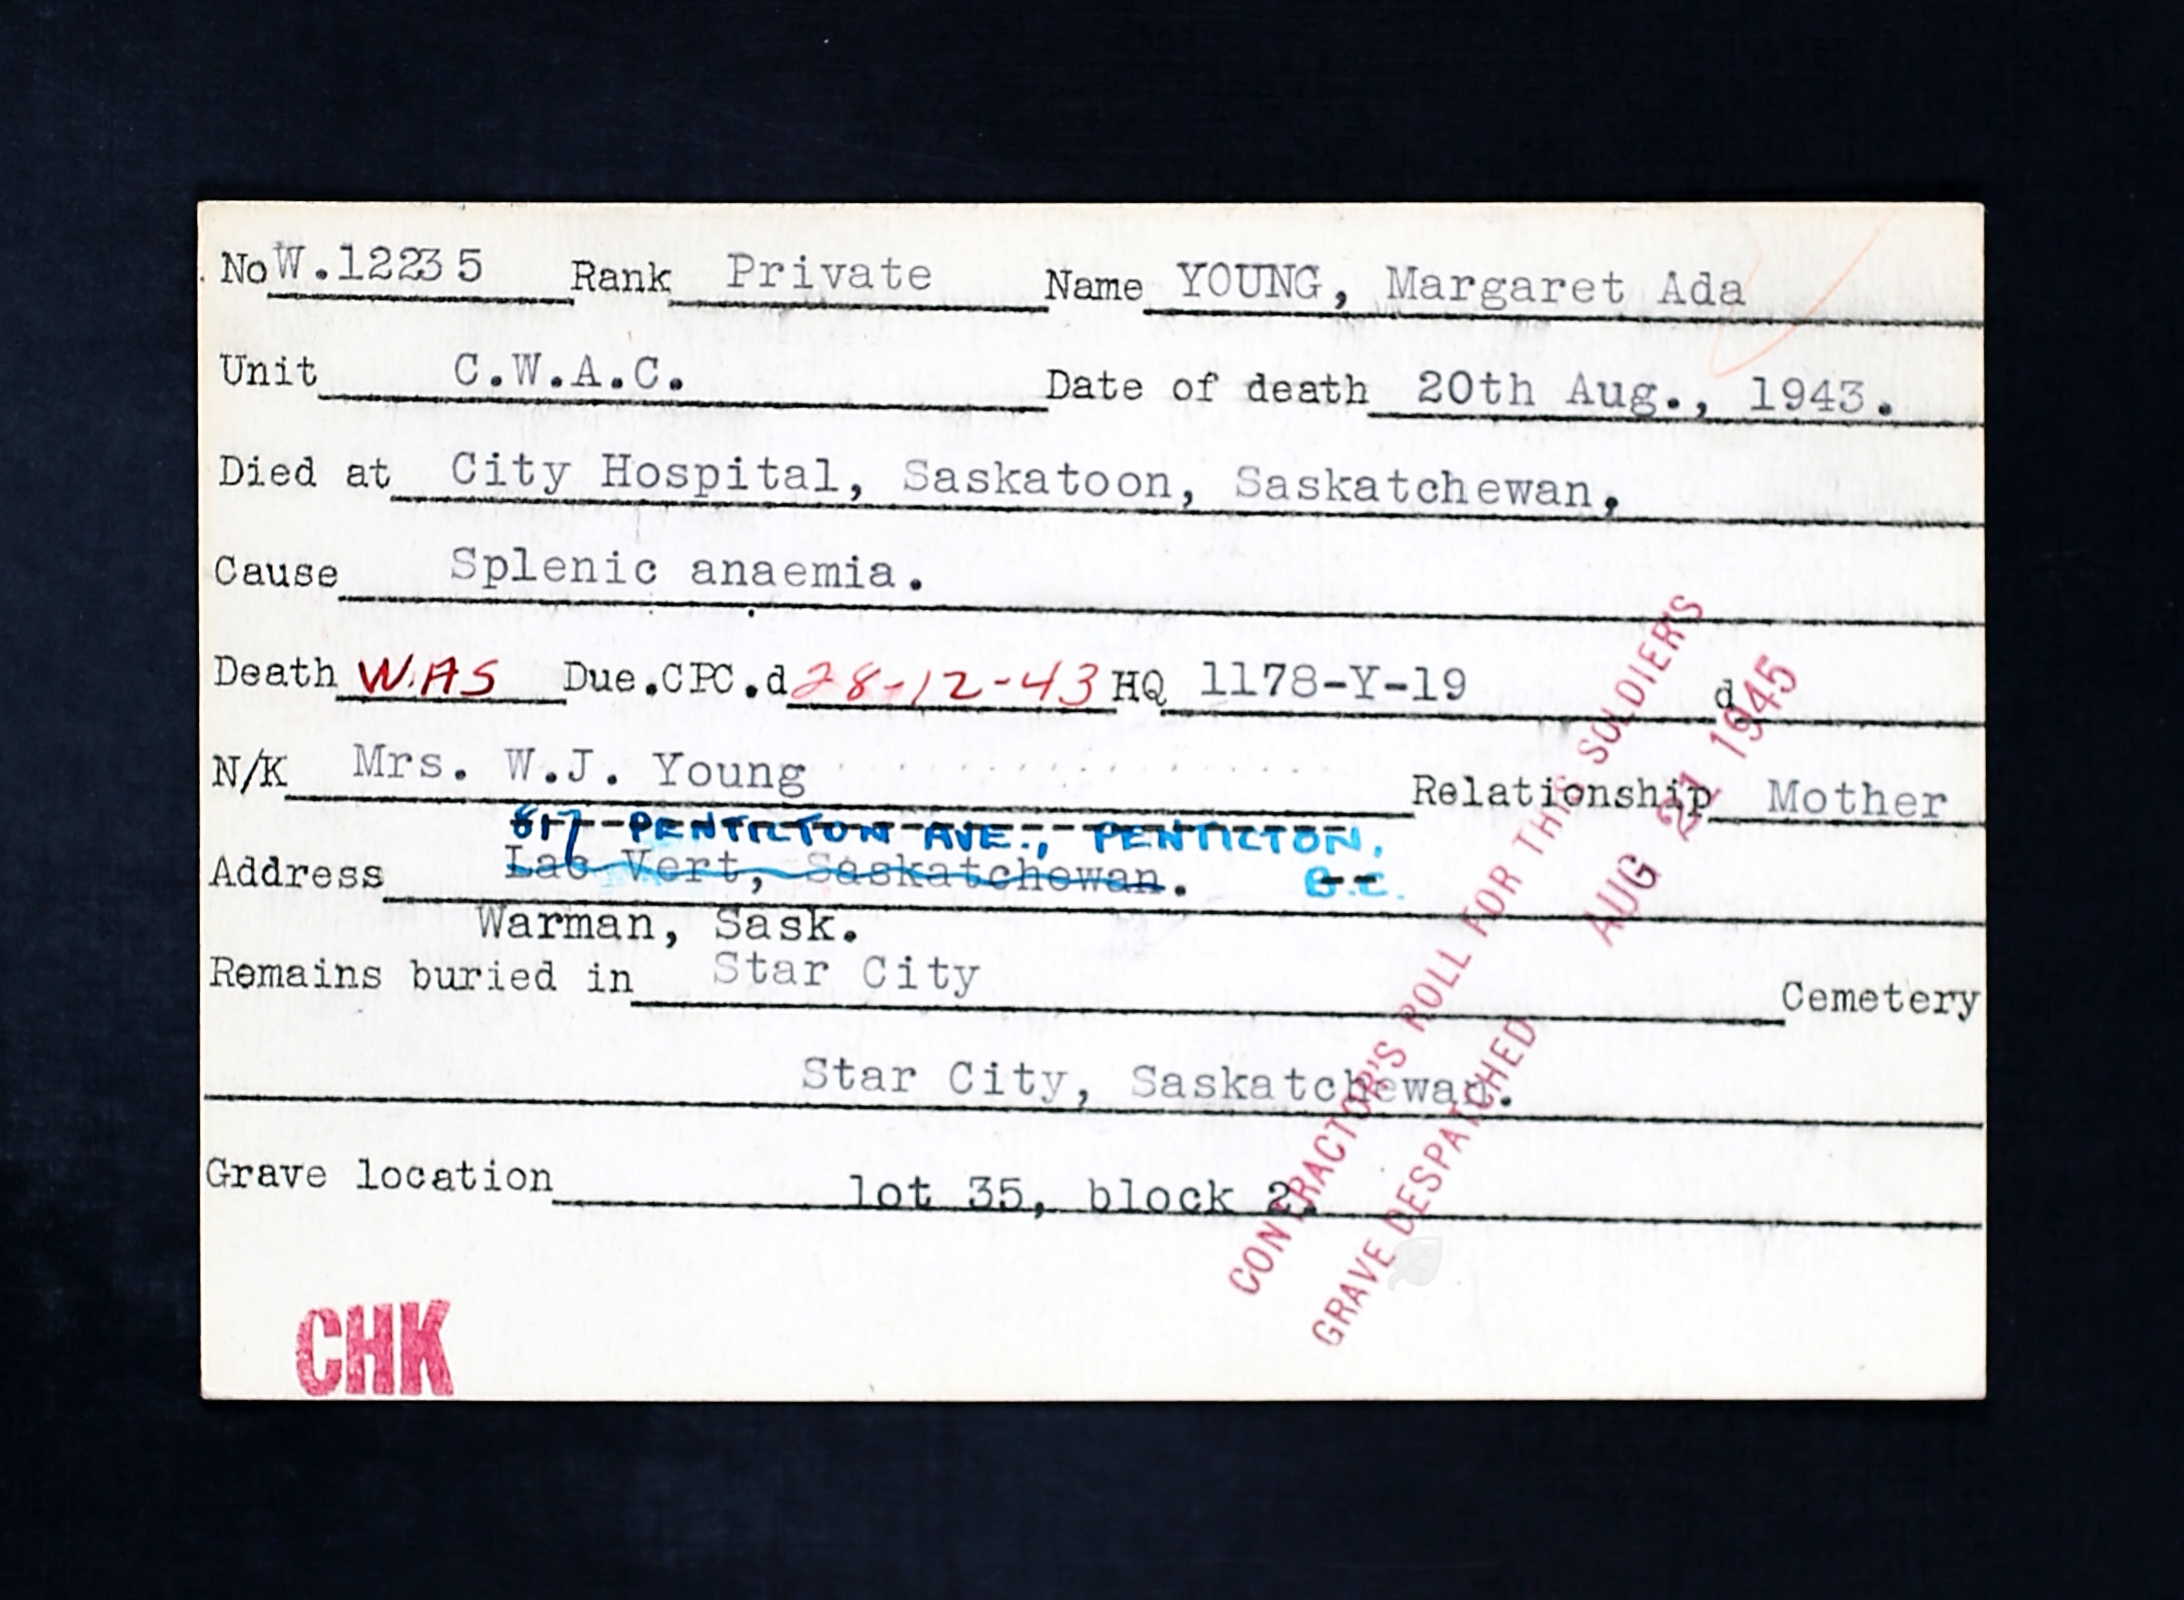 No W.12235 Rank Private Name YOUNG, Margaret Ada
Unit C.W.A.C. Date of death 20th Aug., 1943.
Died at City Hospital, Saskatoon, Saskatchewan,
Cause Splenic anaemia.
Death W.AS Due.CPC.d 28-12-43 HQ 1178-Y-19 d
N/K Mrs. W.J. Young Relationship Mother
817 PENTICTON AVE., PENTICTON,
Address Lac Vert, Saskatchewan. B.C.
Warman, Sask.
Remains buried in Star City Cemetery
Star City, Saskatchewan.
Grave location lot 35, block 2.
CONTRACTOR'S ROLL FOR THIS SOLDIER'S
GRAVE DESPATCHED AUG 21 1945
CHK